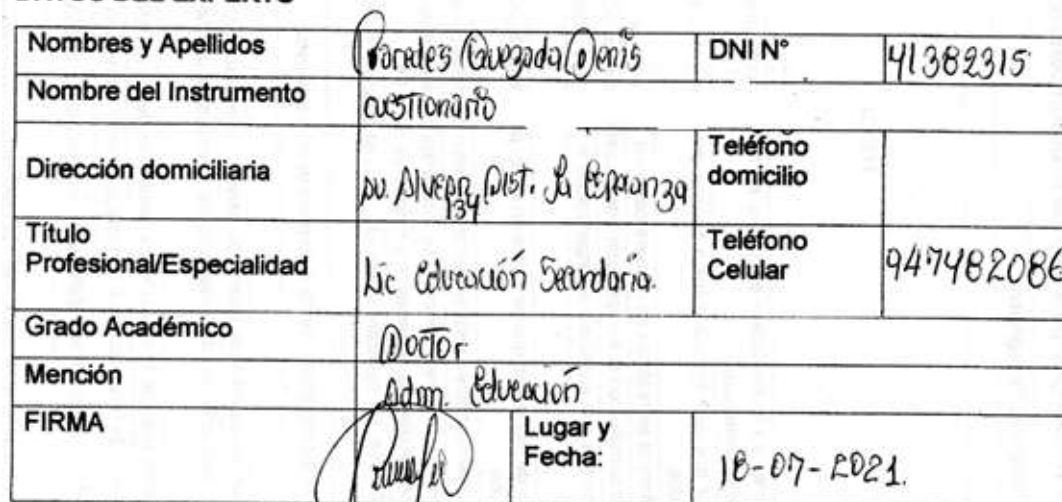 Nombres y Apellidos Paredes Quezada Denis DNI N° 41382315
Nombre del Instrumento cuestionario
Dirección domiciliaria Av. 134 Dist. La Esperanza Teléfono domicilio
Título Profesional/Especialidad Lic Educación Secundaria. Teléfono Celular 947482086
Grado Académico Doctor
Mención Adm. Educación
FIRMA Lugar y Fecha: 18-07-2021.